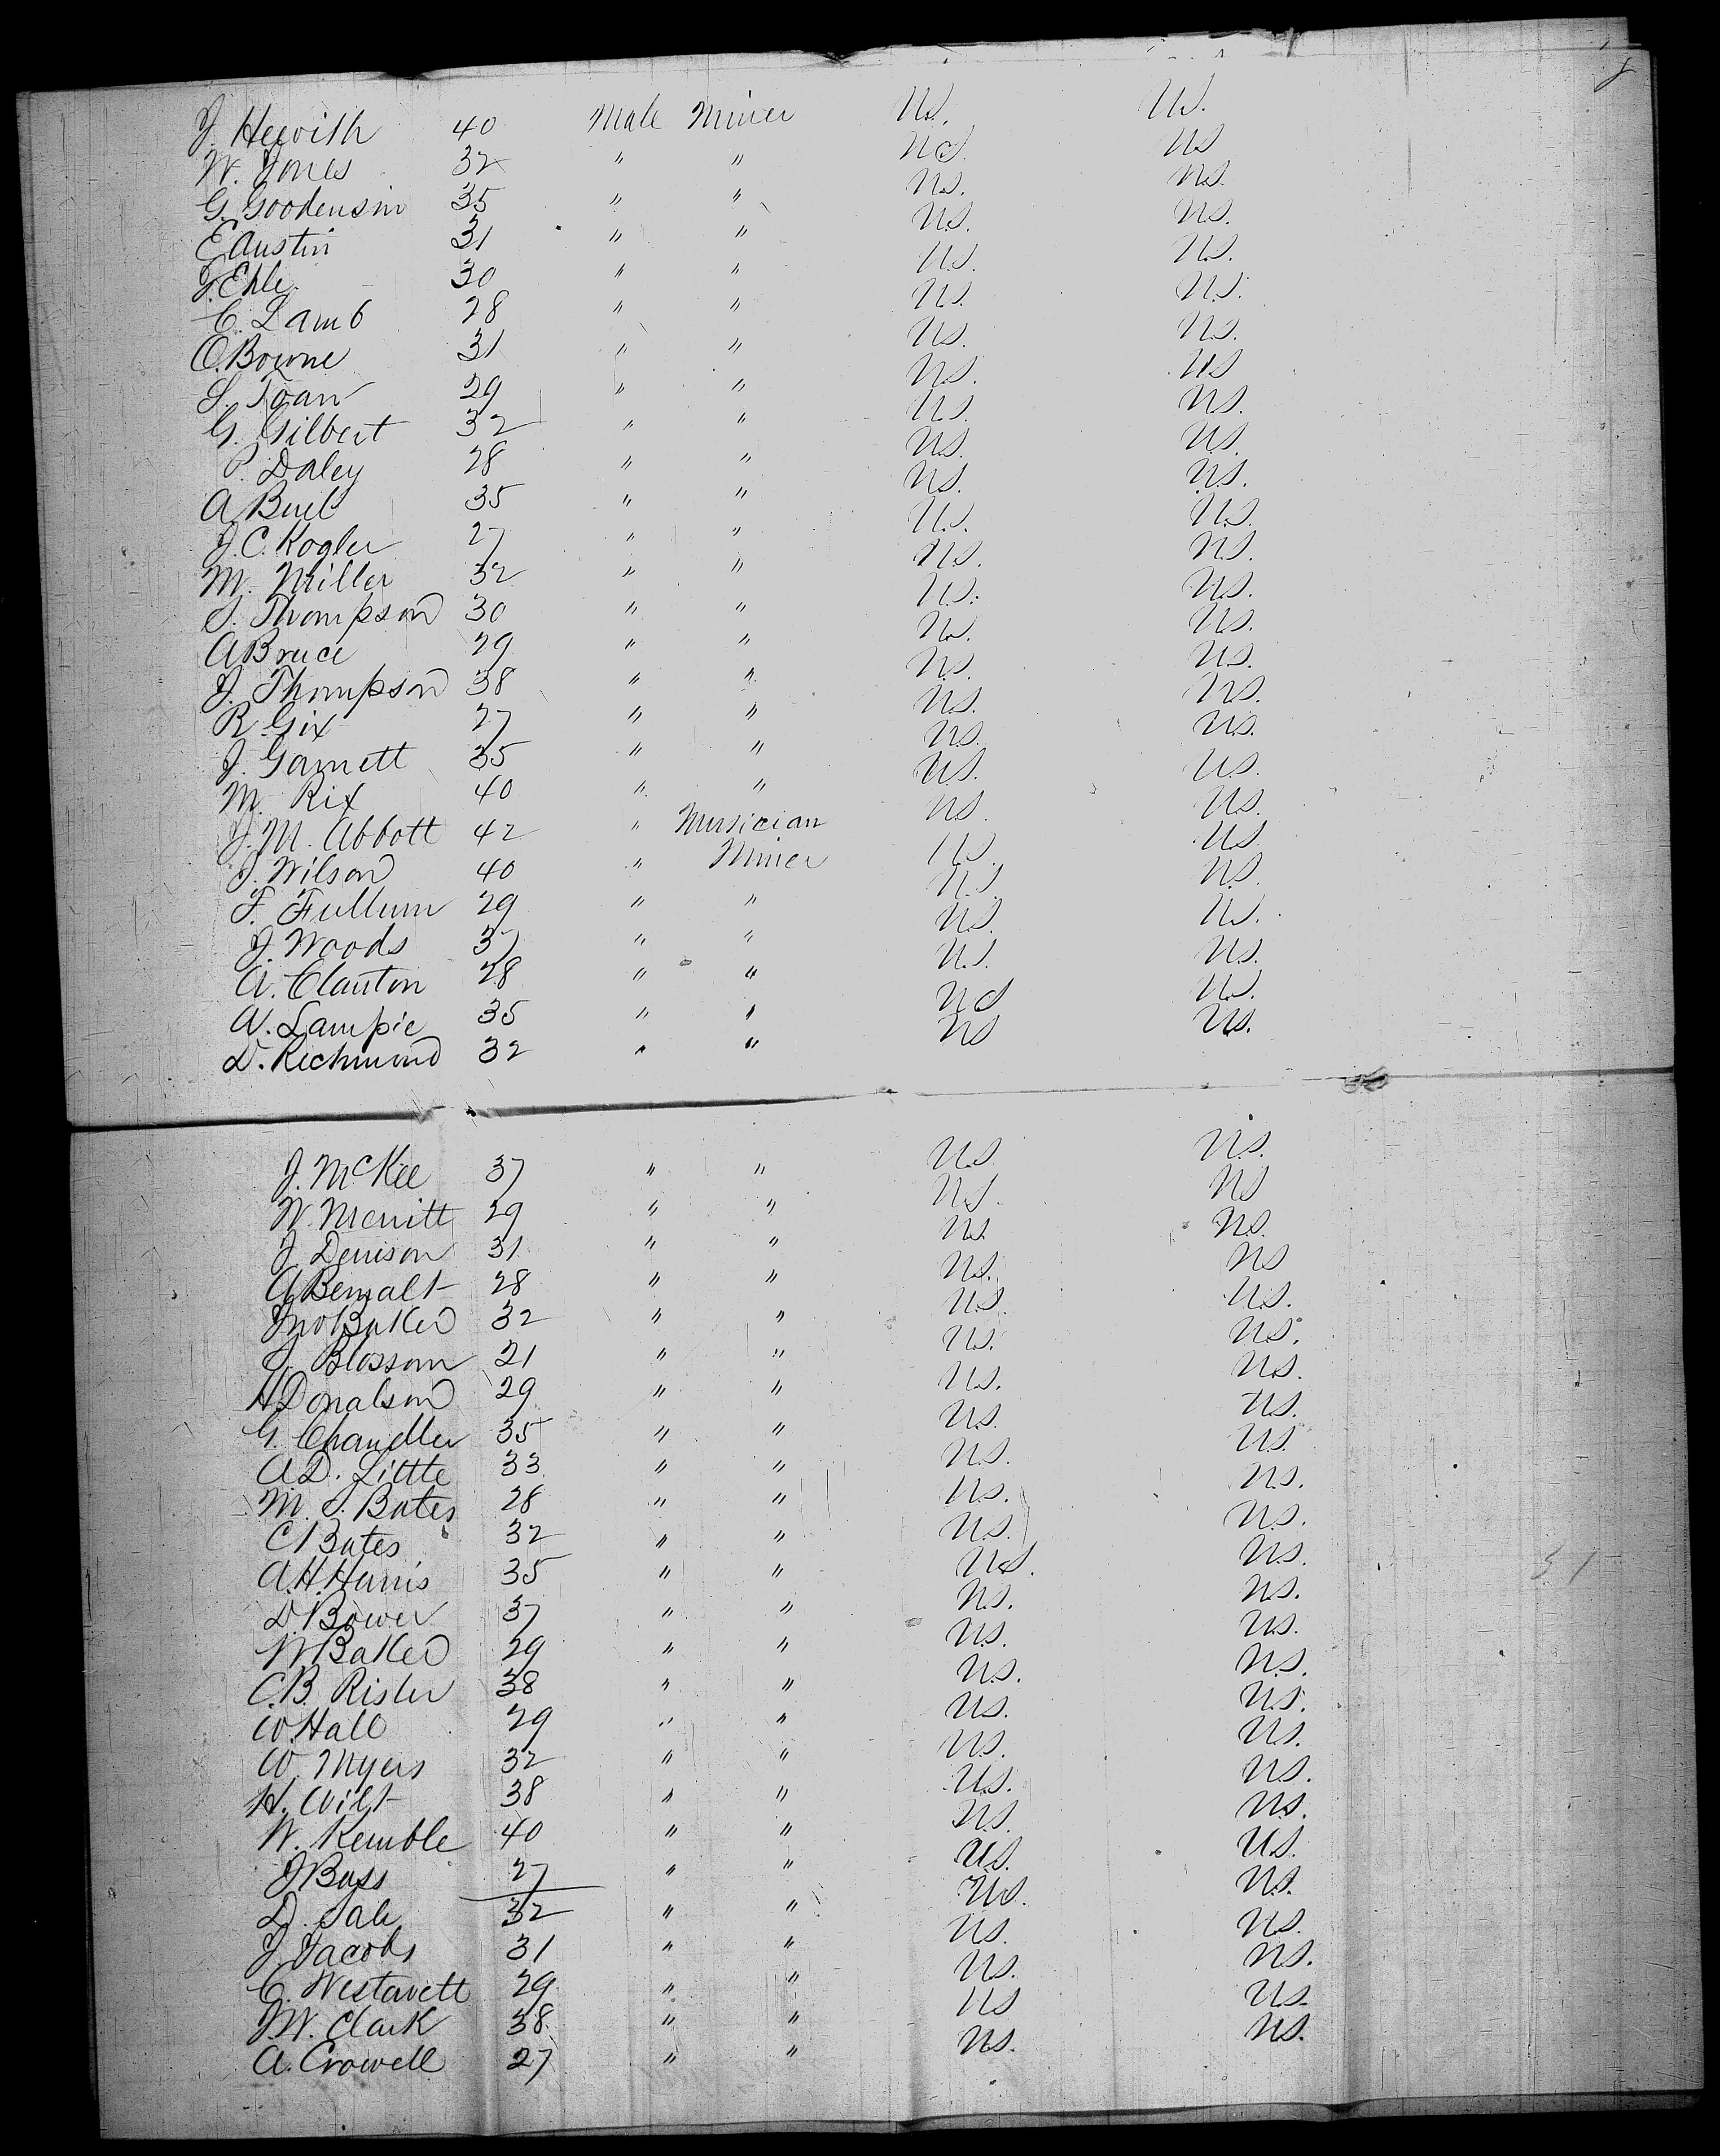 J. Hewith 40 Male Miner U.S. U.S.
W. Jones 32 " " U.S. U.S
G. Goodensin 35 " " U.S. U.S.
E Austin 31 " " U.S. U.S.
J. Ehle 30 " " U.S. U.S.
C. Lamb 28 " " U.S. U.S.
O. Bowne 31 " " U.S. U.S.
S. Toan 29 " " U.S. U.S
G. Gilbert 32 " " U.S. U.S.
P. Daley 28 " " U.S. U.S.
A Buel 35 " " U.S. U.S.
J. C. Kogler 27 " " U.S. U.S.
M. Miller 32 " " U.S. U.S.
S. Thompson 30 " " U.S. U.S.
A Bruce 29 " " U.S. U.S.
J. Thompson 38 " " U.S. U.S.
R Gix 27 " " U.S. U.S.
J. Garnett 35 " " U.S. U.S.
M. Rix 40 " " U.S. U.S.
J. M. Abbott 42 " Musician U.S. U.S.
J. Wilson 40 " Miner U.S. U.S.
F. Fullum 29 " " U.S. U.S.
J. Woods 37 " " U.S. U.S.
A. Clanton 28 " " U.S. U.S.
A. Lampie 35 " " U.S U.S.
D. Richmond 32 " " U.S U.S.
J. McKee 37 " " U.S. U.S.
W. Merritt 29 " " U.S. U.S
J Denison 31 " " U.S. U.S.
A Bemalt 28 " " U.S. U.S
Jno Baker 32 " " U.S. U.S.
J. Blossom 21 " " U.S. U.S.
H Donalson 29 " " U.S. U.S.
G. Chandler 35 " " U.S. U.S.
A D. Little 33 " " U.S. U.S.
M. S. Bates 28 " " U.S. U.S.
C Bates 32 " " U.S. U.S.
A. H. Harris 35 " " U.S. U.S.
D. Bower 37 " " U.S. U.S.
W Baker 29 " " U.S. U.S.
C. B. Risler 38 " " U.S. U.S.
W. Hall 29 " " U.S. U.S.
W. Myers 32 " " U.S. U.S.
H. Wilt 38 " " U.S. U.S.
W. Kemble 40 " " U.S. U.S.
J Bass 27 " " U.S. U.S.
D. Sale 32 " " U.S. U.S.
J Jacobs 31 " " U.S. U.S.
C. Westavett 29 " " U.S. U.S.
J. W. Clark 38 " " U.S U.S.
A. Crowell 27 " " U.S. U.S.